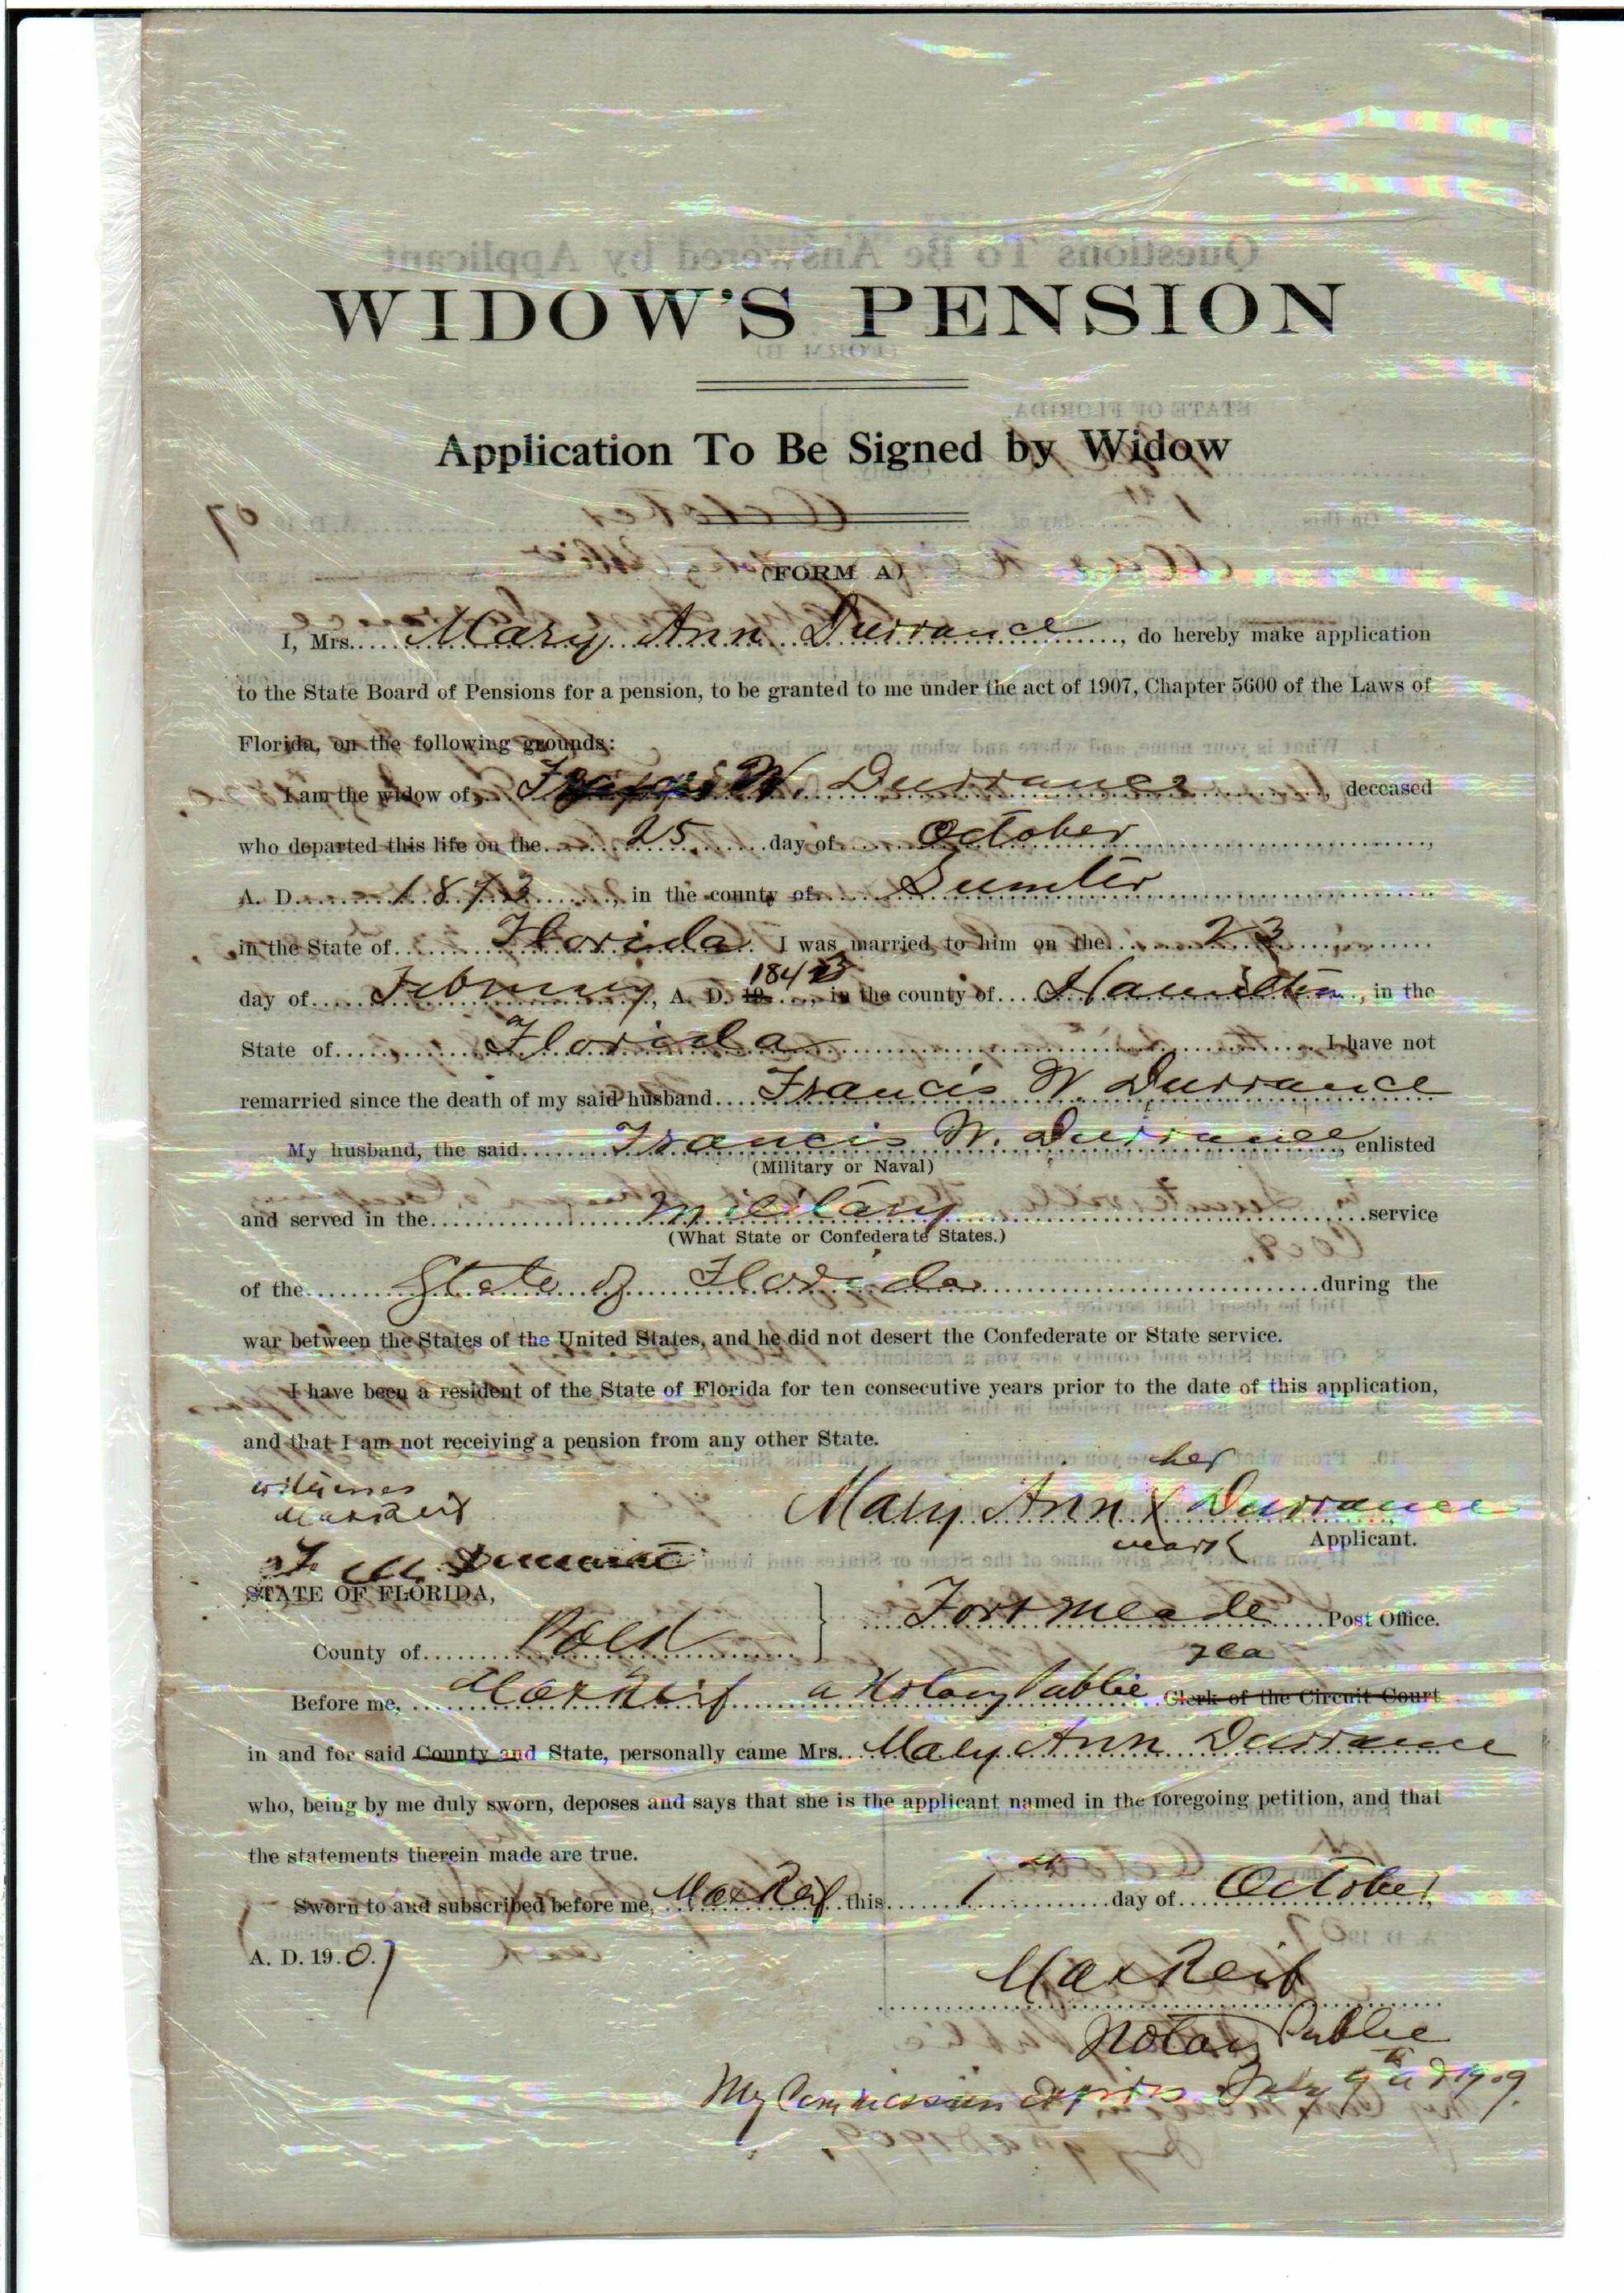 WIDOW'S PENSION
Application To Be Signed by Widow
(FORM A)
I, Mrs. Mary Ann Durrance, do hereby make application
to the State Board of Pensions for a pension, to be granted to me under the act of 1907, Chapter 5600 of the Laws of
Florida, on the following grounds:
I am the widow of W. Durrance, deceased
who departed this life on the 25 day of October,
A. D. 1873, in the county of Sumter
in the State of Florida. I was married to him on the 23
day of Febuary, A. D. 19 184, in the county of Hamilton, in the
State of Florida I have not
remarried since the death of my said husband Francis W. Durrance
My husband, the said Francis W. Durrance, enlisted
(Military or Naval)
and served in the military service
(What State or Confederate States.)
of the State of Florida during the
war between the States of the United States, and he did not desert the Confederate or State service.
I have been a resident of the State of Florida for ten consecutive years prior to the date of this application,
and that I am not receiving a pension from any other State.
witnesses her
Max Reif Mary Ann X Durrance
mark Applicant.
Durrance
STATE OF FLORIDA,
Fort Meade Post Office.
County of Polk Fla
Before me, Max Reif a Notary Public Clerk of the Circuit Court
in and for said County and State, personally came Mrs. Mary Ann Durrance
who, being by me duly sworn, deposes and says that she is the applicant named in the foregoing petition, and that
the statements therein made are true.
Sworn to and subscribed before me, Max Reif this 1st day of October,
A. D. 1907
Max Reif
Notary Public
My Commission expires July 9th a d 1909.